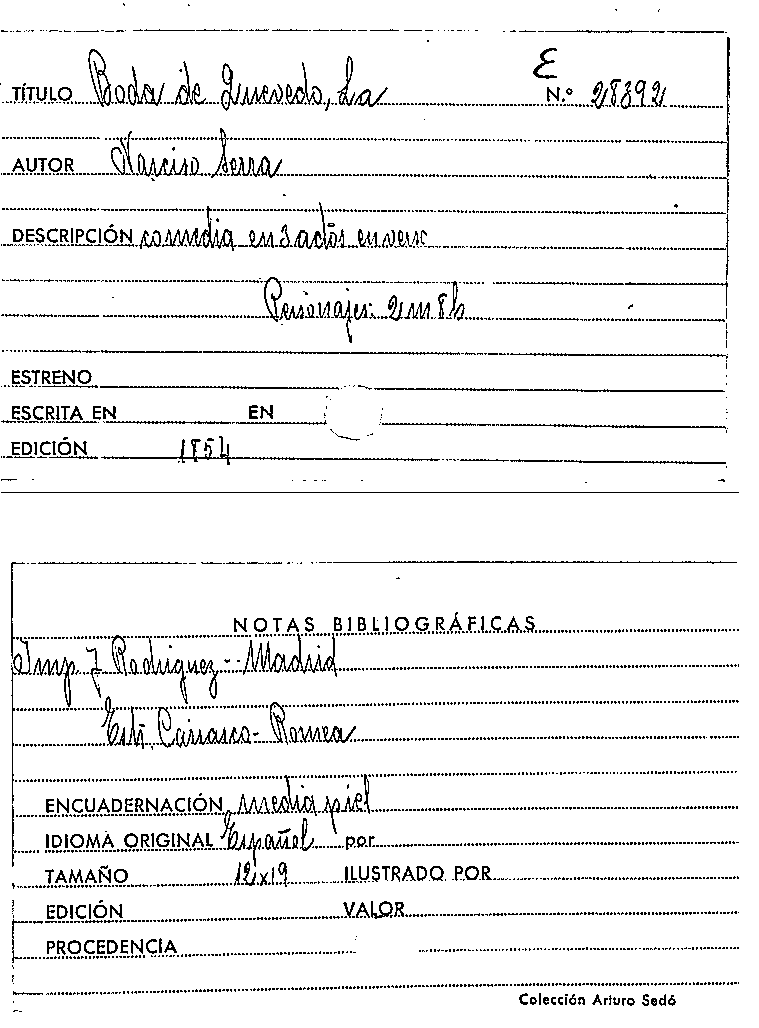 E
TÍTULO Boda de Quevedo, La N.º 28392
AUTOR Narciso Serra
DESCRIPCIÓN comedia en 3 actos en verso
Personajes: 2 m 8 h
ESTRENO
ESCRITA EN EN
EDICIÓN 1854
NOTAS BIBLIOGRÁFICAS
Imp J Rodriguez - Madrid
Estr. Carrasco - Romea
ENCUADERNACIÓN media piel
IDIOMA ORIGINAL Español por
TAMAÑO 12x19 ILUSTRADO POR
EDICIÓN VALOR
PROCEDENCIA
Colección Arturo Sedó